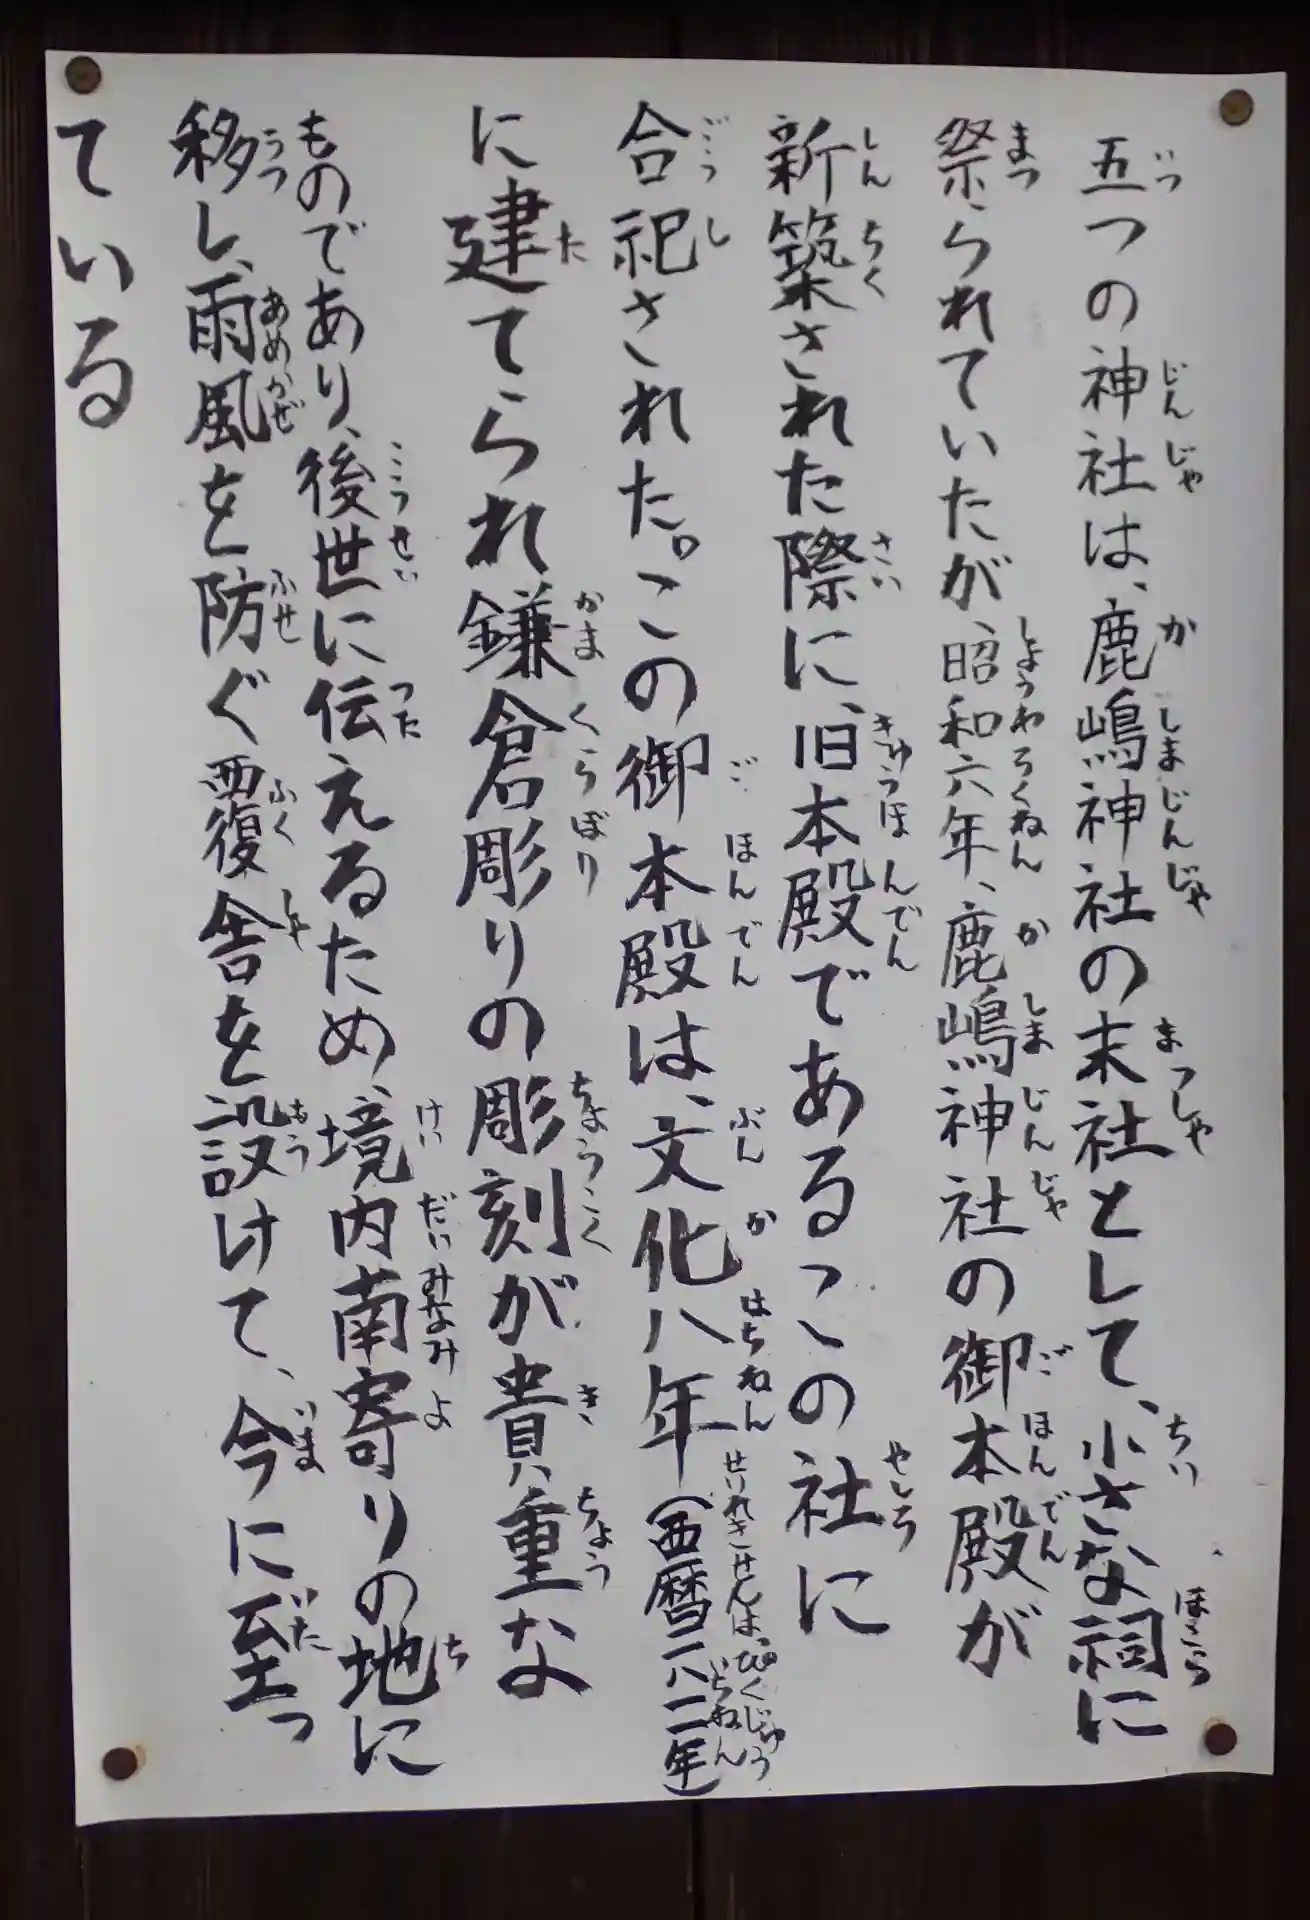 五つの神社は、鹿嶋神社の末社として、小さな祠に
祭られていたが、昭和六年、鹿嶋神社の御本殿が
新築された際に、旧本殿であるこの社に
合祀された。この御本殿は、文化八年(西暦一八一一年)
に建てられ鎌倉彫りの彫刻が貴重な
ものであり、後世に伝えるため、境内南寄りの地に
移し、雨風を防ぐ覆舎を設けて、今に至っ
ている